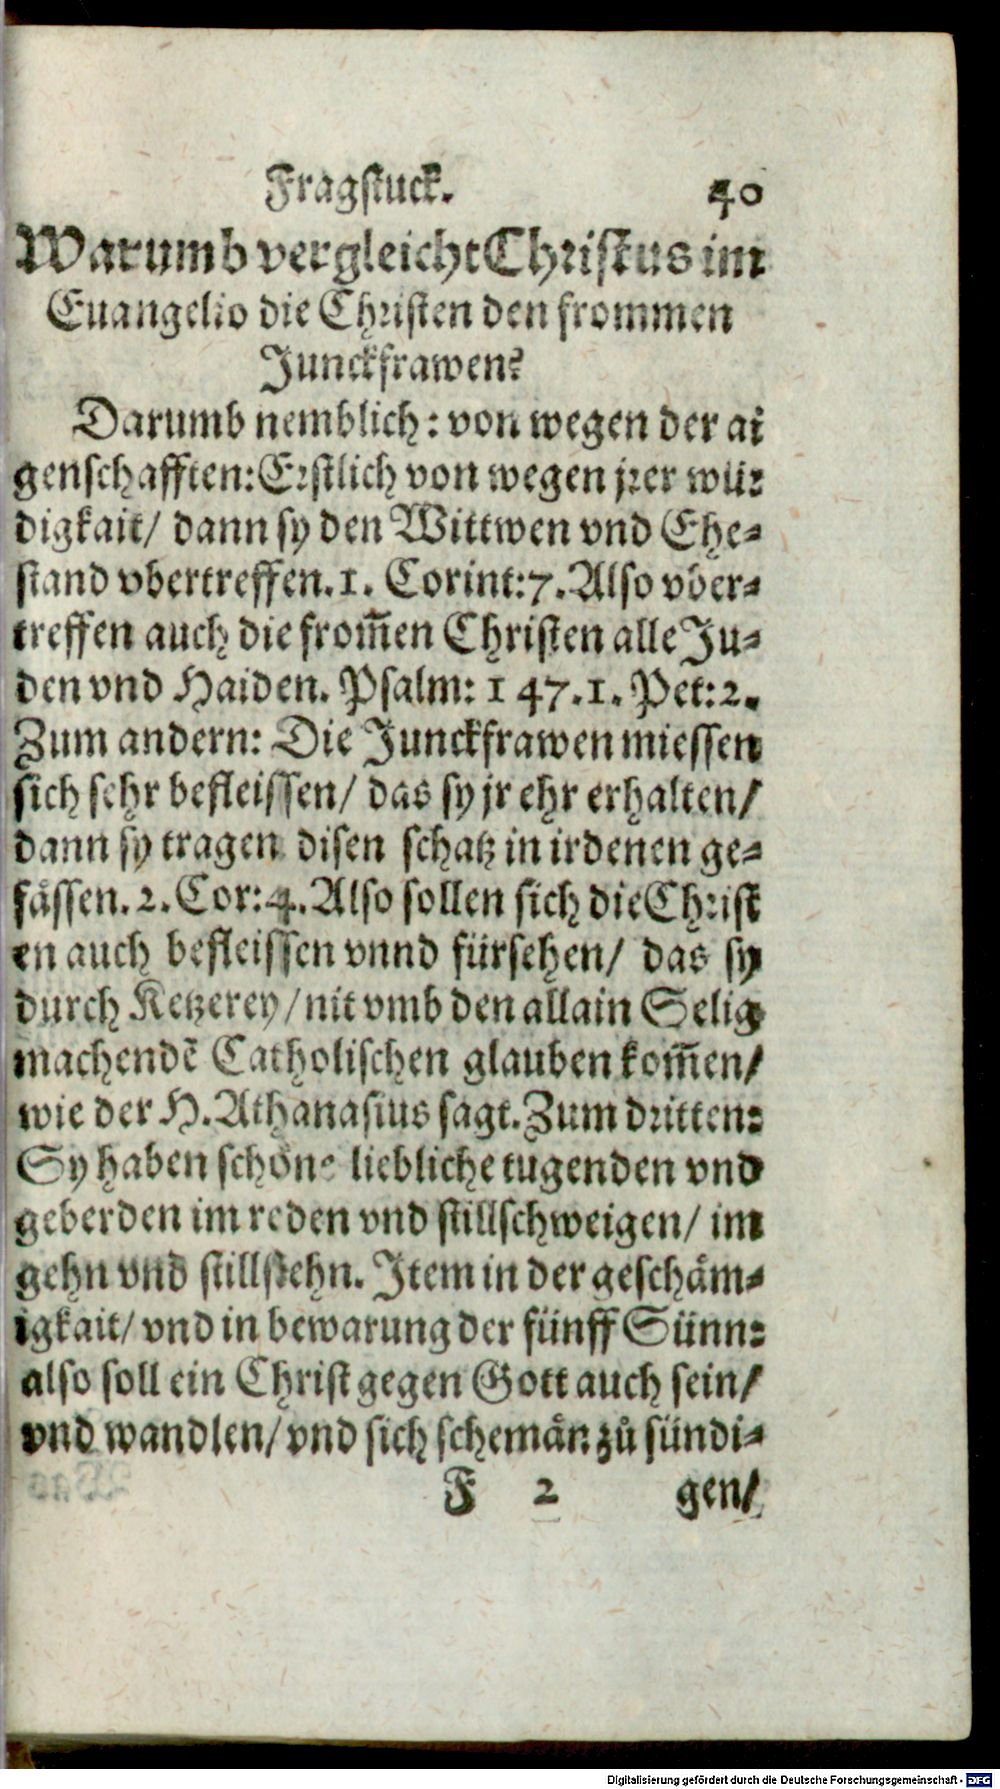 Fragstuck. 40
Warumb vergleicht Christus im
Euangelio die Christen den frommen
Junckfrawen?
Darumb nemblich: von wegen der ai
genschafften: Erstlich von wegen jrer wür
digkait/ dann sy den Wittwen vnd Ehe-
stand vbertreffen. 1. Corint: 7. Also vber-
treffen auch die from̃en Christen alle Ju-
den vnd Haiden. Psalm: 147. 1. Pet: 2.
Zum andern: Die Junckfrawen miessen
sich sehr befleissen/ das sy jr ehr erhalten/
dann sy tragen disen schatz in irdenen ge-
fässen. 2. Cor: 4. Also sollen sich die Christ
en auch befleissen vnnd fürsehen/ das sy
durch Ketzerey/ nit vmb den allain Selig
machendẽ Catholischen glauben kom̃en/
wie der H. Athanasius sagt. Zum dritten:
Sy haben schöne liebliche tugenden vnd
geberden im reden vnd stillschweigen/ im
gehn vnd stillstehn. Item in der geschäm-
igkait/ vnd in bewarung der fünff Sünn:
also soll ein Christ gegen Gott auch sein/
vnd wandlen/ vnd sich schemän zů sündi-
F 2 gen/
Digitalisierung gefördert durch die Deutsche Forschungsgemeinschaft - DFG